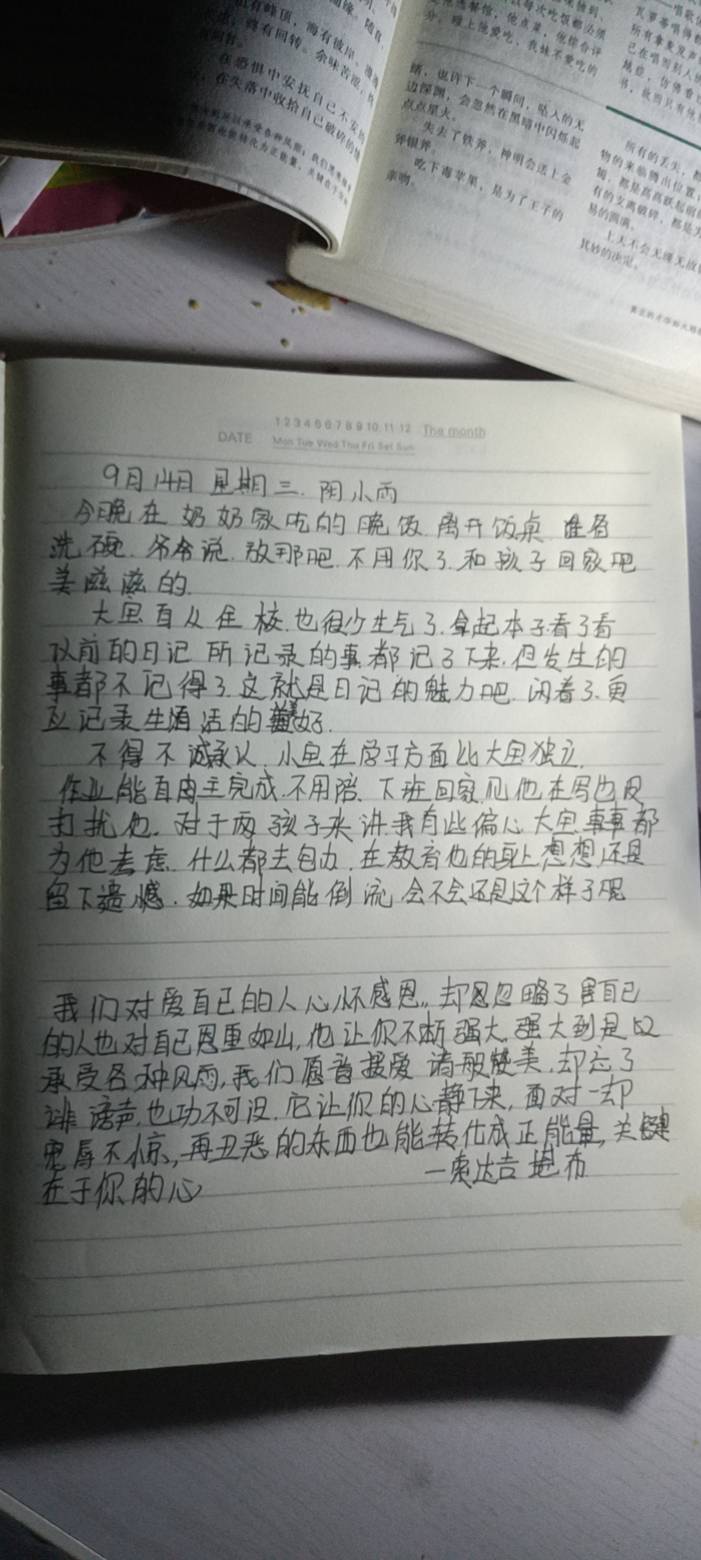 点点星火。
失去了铁斧，神明会送上金
斧银斧。
吃下毒苹果，是为了王子的
亲吻。
其妙的决定。
1 2 3 4 5 6 7 8 9 10 11 12 The month
DATE Mon Tue Wed Thu Fri Sat Sun
9月14日 星期三 阴小雨
今晚在奶奶家吃的晚饭 离开饭桌 准备
洗碗 爷爷说 放那吧 不用你了 和孩子回家吧
美滋滋的
大鱼自从住校 也很少生气了 拿起本子看了看
以前的日记 所记录的事都记了下来 但发生的
事都不记得了 这就是日记的魅力吧 闲着了 更
应记录生活的美好
不得不诚承认 小鱼在学习方面比大鱼独立
作业能自由主完成 不用陪 下班回家 见他在写也没
打扰他 对于两孩子来讲 我有些偏心 大鱼事事都
为他考虑 什么都去包办 在教育他的身上想想还是
留下遗憾 如果时间能倒流 会不会还是这个样子呢
我们对爱自己的人心怀感恩 却忽略了害自己
的人也对自己恩重如山，他让你不断强大 强大到足以
承受各种风雨，我们愿意接受诸般赞美 却忘了
诽谤声也功不可没 它让你的心静下来，面对一切
宠辱不惊，再丑恶的东西也能转化成正能量，关键
在于你的心
一索达吉堪布